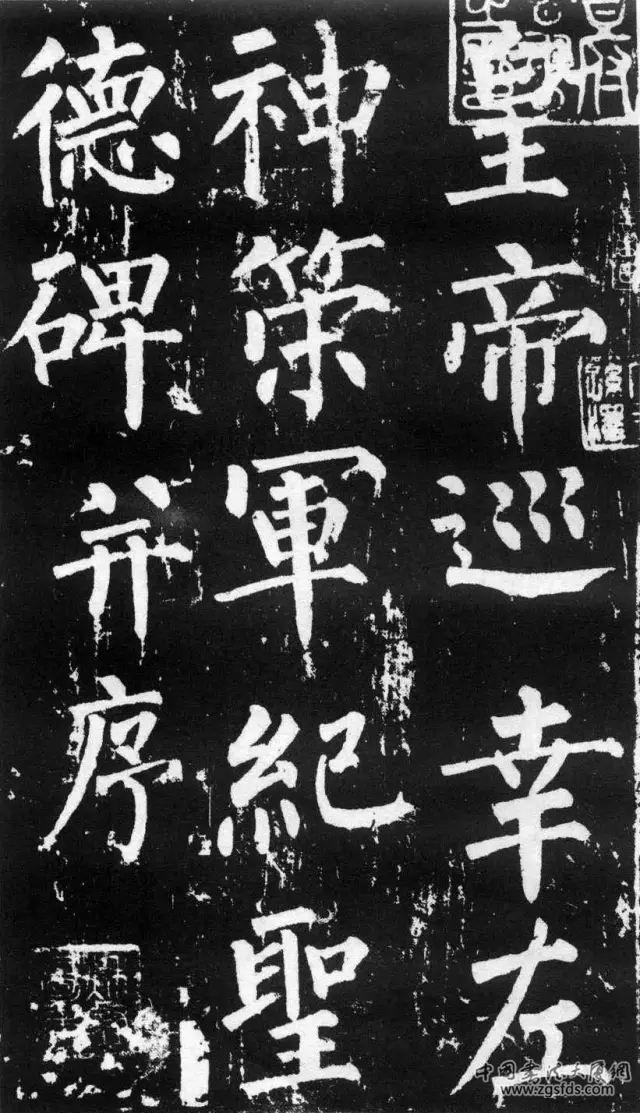 皇帝巡幸左
神策軍紀聖
德碑并序
中国书法大图网
www.zgsfds.com